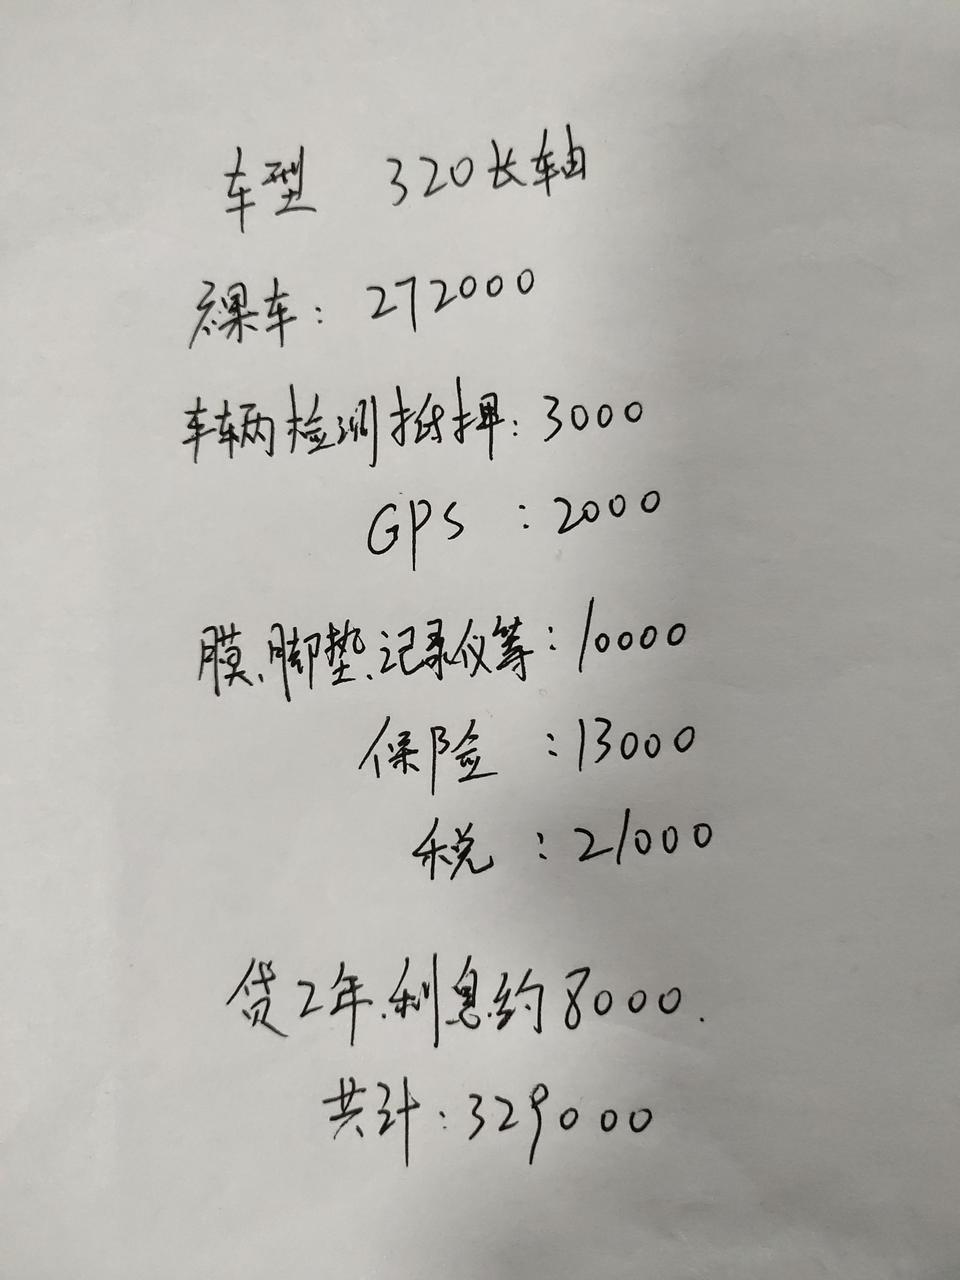 车型 320长轴
裸车：272000
车辆检测抵押：3000
GPS：2000
膜、脚垫、记录仪等：10000
保险：13000
税：21000
贷2年、利息约8000.
共计：329000